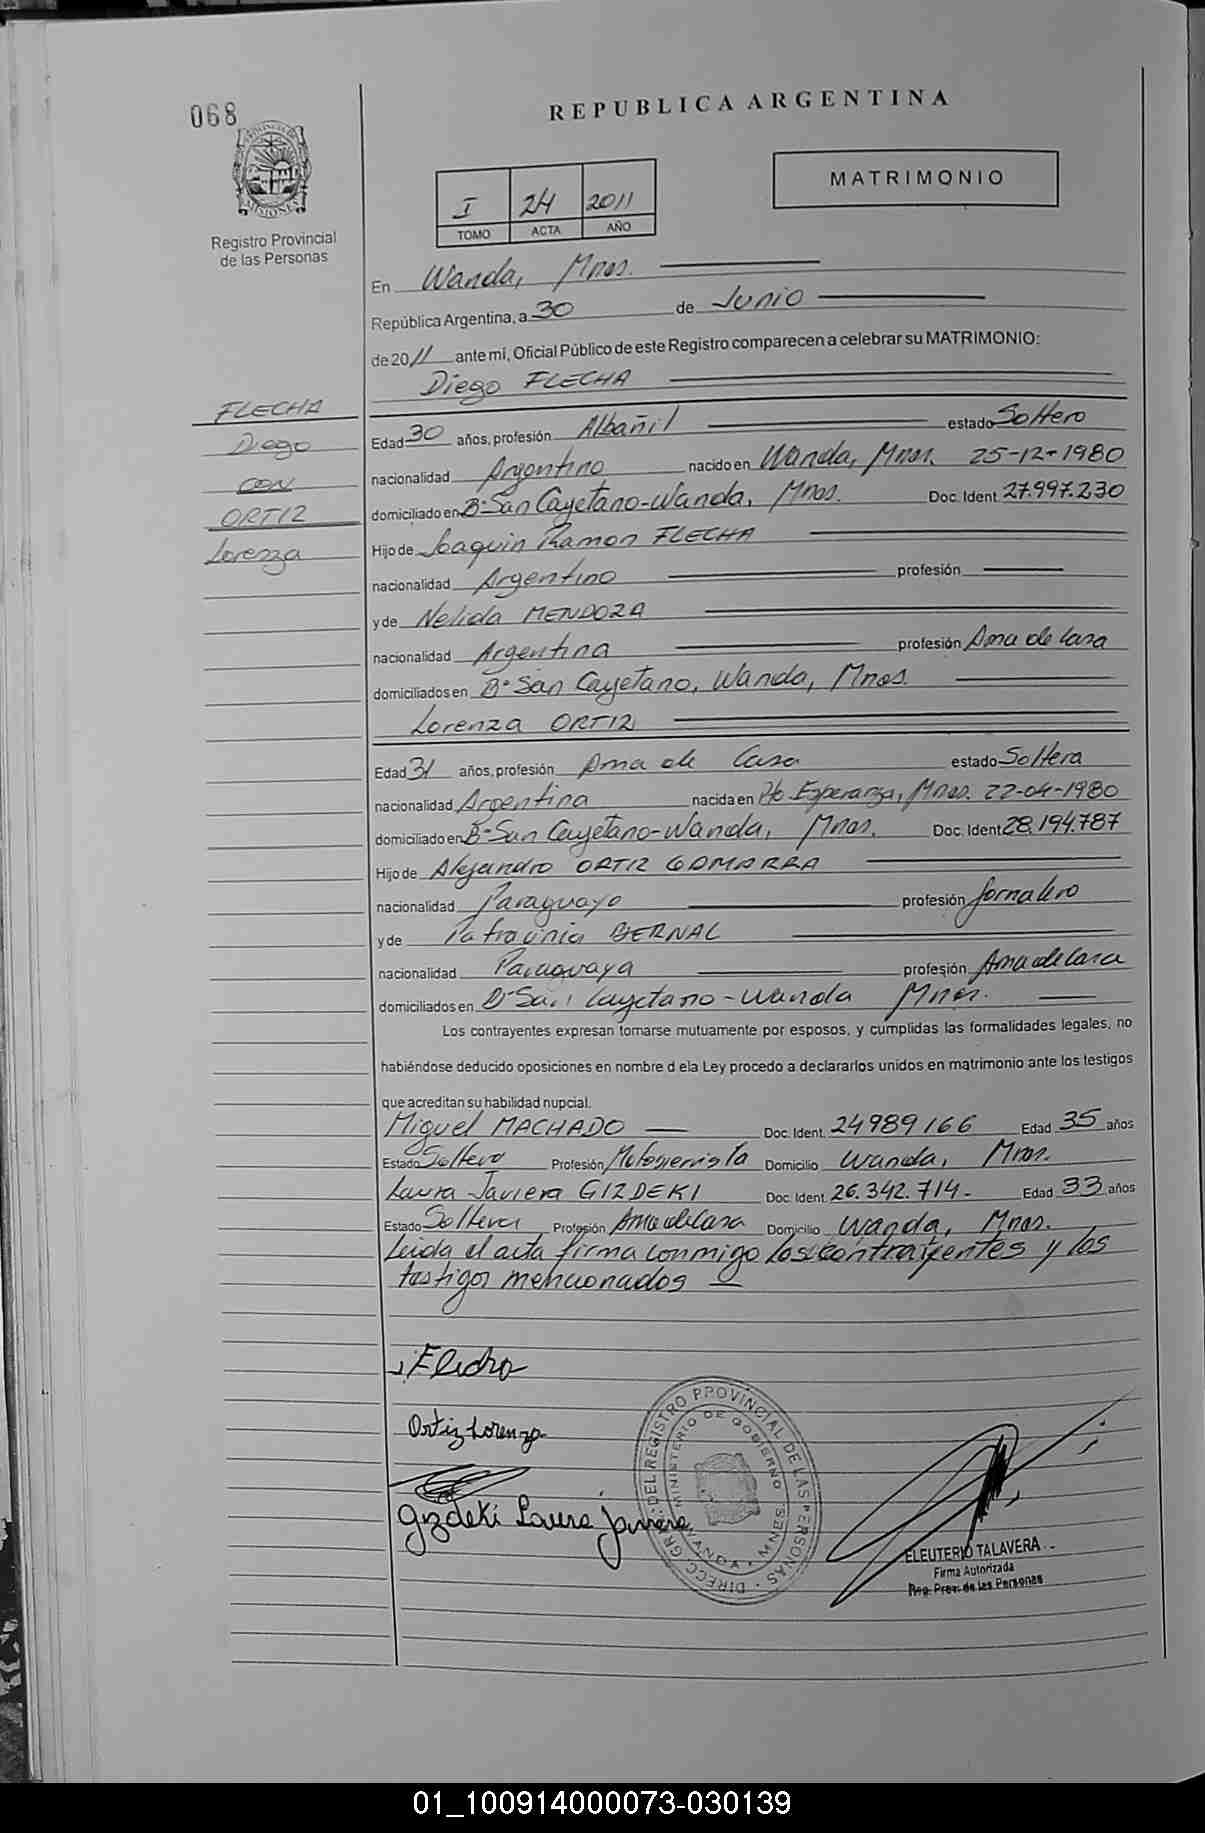 068
REPUBLICA ARGENTINA
PROVINCIA DE MISIONES
Registro Provincial
de las Personas
I 24 2011
TOMO ACTA AÑO
MATRIMONIO
En Wanda, Mnes.
República Argentina, a 30 de Junio
de 2011 ante mí, Oficial Público de este Registro comparecen a celebrar su MATRIMONIO:
Diego FLECHA
FLECHA
Diego
CON
ORTIZ
Lorenza
Edad 30 años, profesión Albañil estado Soltero
nacionalidad Argentino nacido en Wanda, Mnes. 25-12-1980
domiciliado en B° San Cayetano-Wanda, Mnes. Doc. Ident. 27.997.230
Hijo de Joaquin Ramon FLECHA
nacionalidad Argentino profesión
y de Nelida MENDOZA
nacionalidad Argentina profesión Ama de Casa
domiciliados en B° San Cayetano, Wanda, Mnes.
Lorenza ORTIZ
Edad 31 años, profesión Ama de Casa estado Soltera
nacionalidad Argentina nacida en Pto Esperanza, Mnes. 22-04-1980
domiciliado en B° San Cayetano-Wanda, Mnes. Doc. Ident. 28.194.787
Hijo de Alejandro ORTIZ GOMARRA
nacionalidad Paraguayo profesión Jornalero
y de Patrocinia BERNAL
nacionalidad Paraguaya profesión Ama de Casa
domiciliados en B° San Cayetano-Wanda Mnes.
Los contrayentes expresan tomarse mutuamente por esposos, y cumplidas las formalidades legales, no
habiéndose deducido oposiciones en nombre d ela Ley procedo a declararlos unidos en matrimonio ante los testigos
que acreditan su habilidad nupcial.
Miguel MACHADO Doc. Ident. 24989166 Edad 35 años
Estado Soltero Profesión Motosierrista Domicilio Wanda, Mnes.
Laura Javiera GIZDEKI Doc. Ident. 26.342.714.- Edad 33 años
Estado Soltera Profesión Ama de Casa Domicilio Wanda, Mnes.
Leida el acta firma conmigo los contrayentes y los
testigos mencionados
Ortiz Lorenza
Gizdeki Laura Javiera
DIRECC. GRAL. DEL REGISTRO PROVINCIAL DE LAS PERSONAS
MINISTERIO DE GOBIERNO
WANDA - MNES.
ELEUTERIO TALAVERA
Firma Autorizada
Reg. Prov. de las Personas
01_100914000073-030139